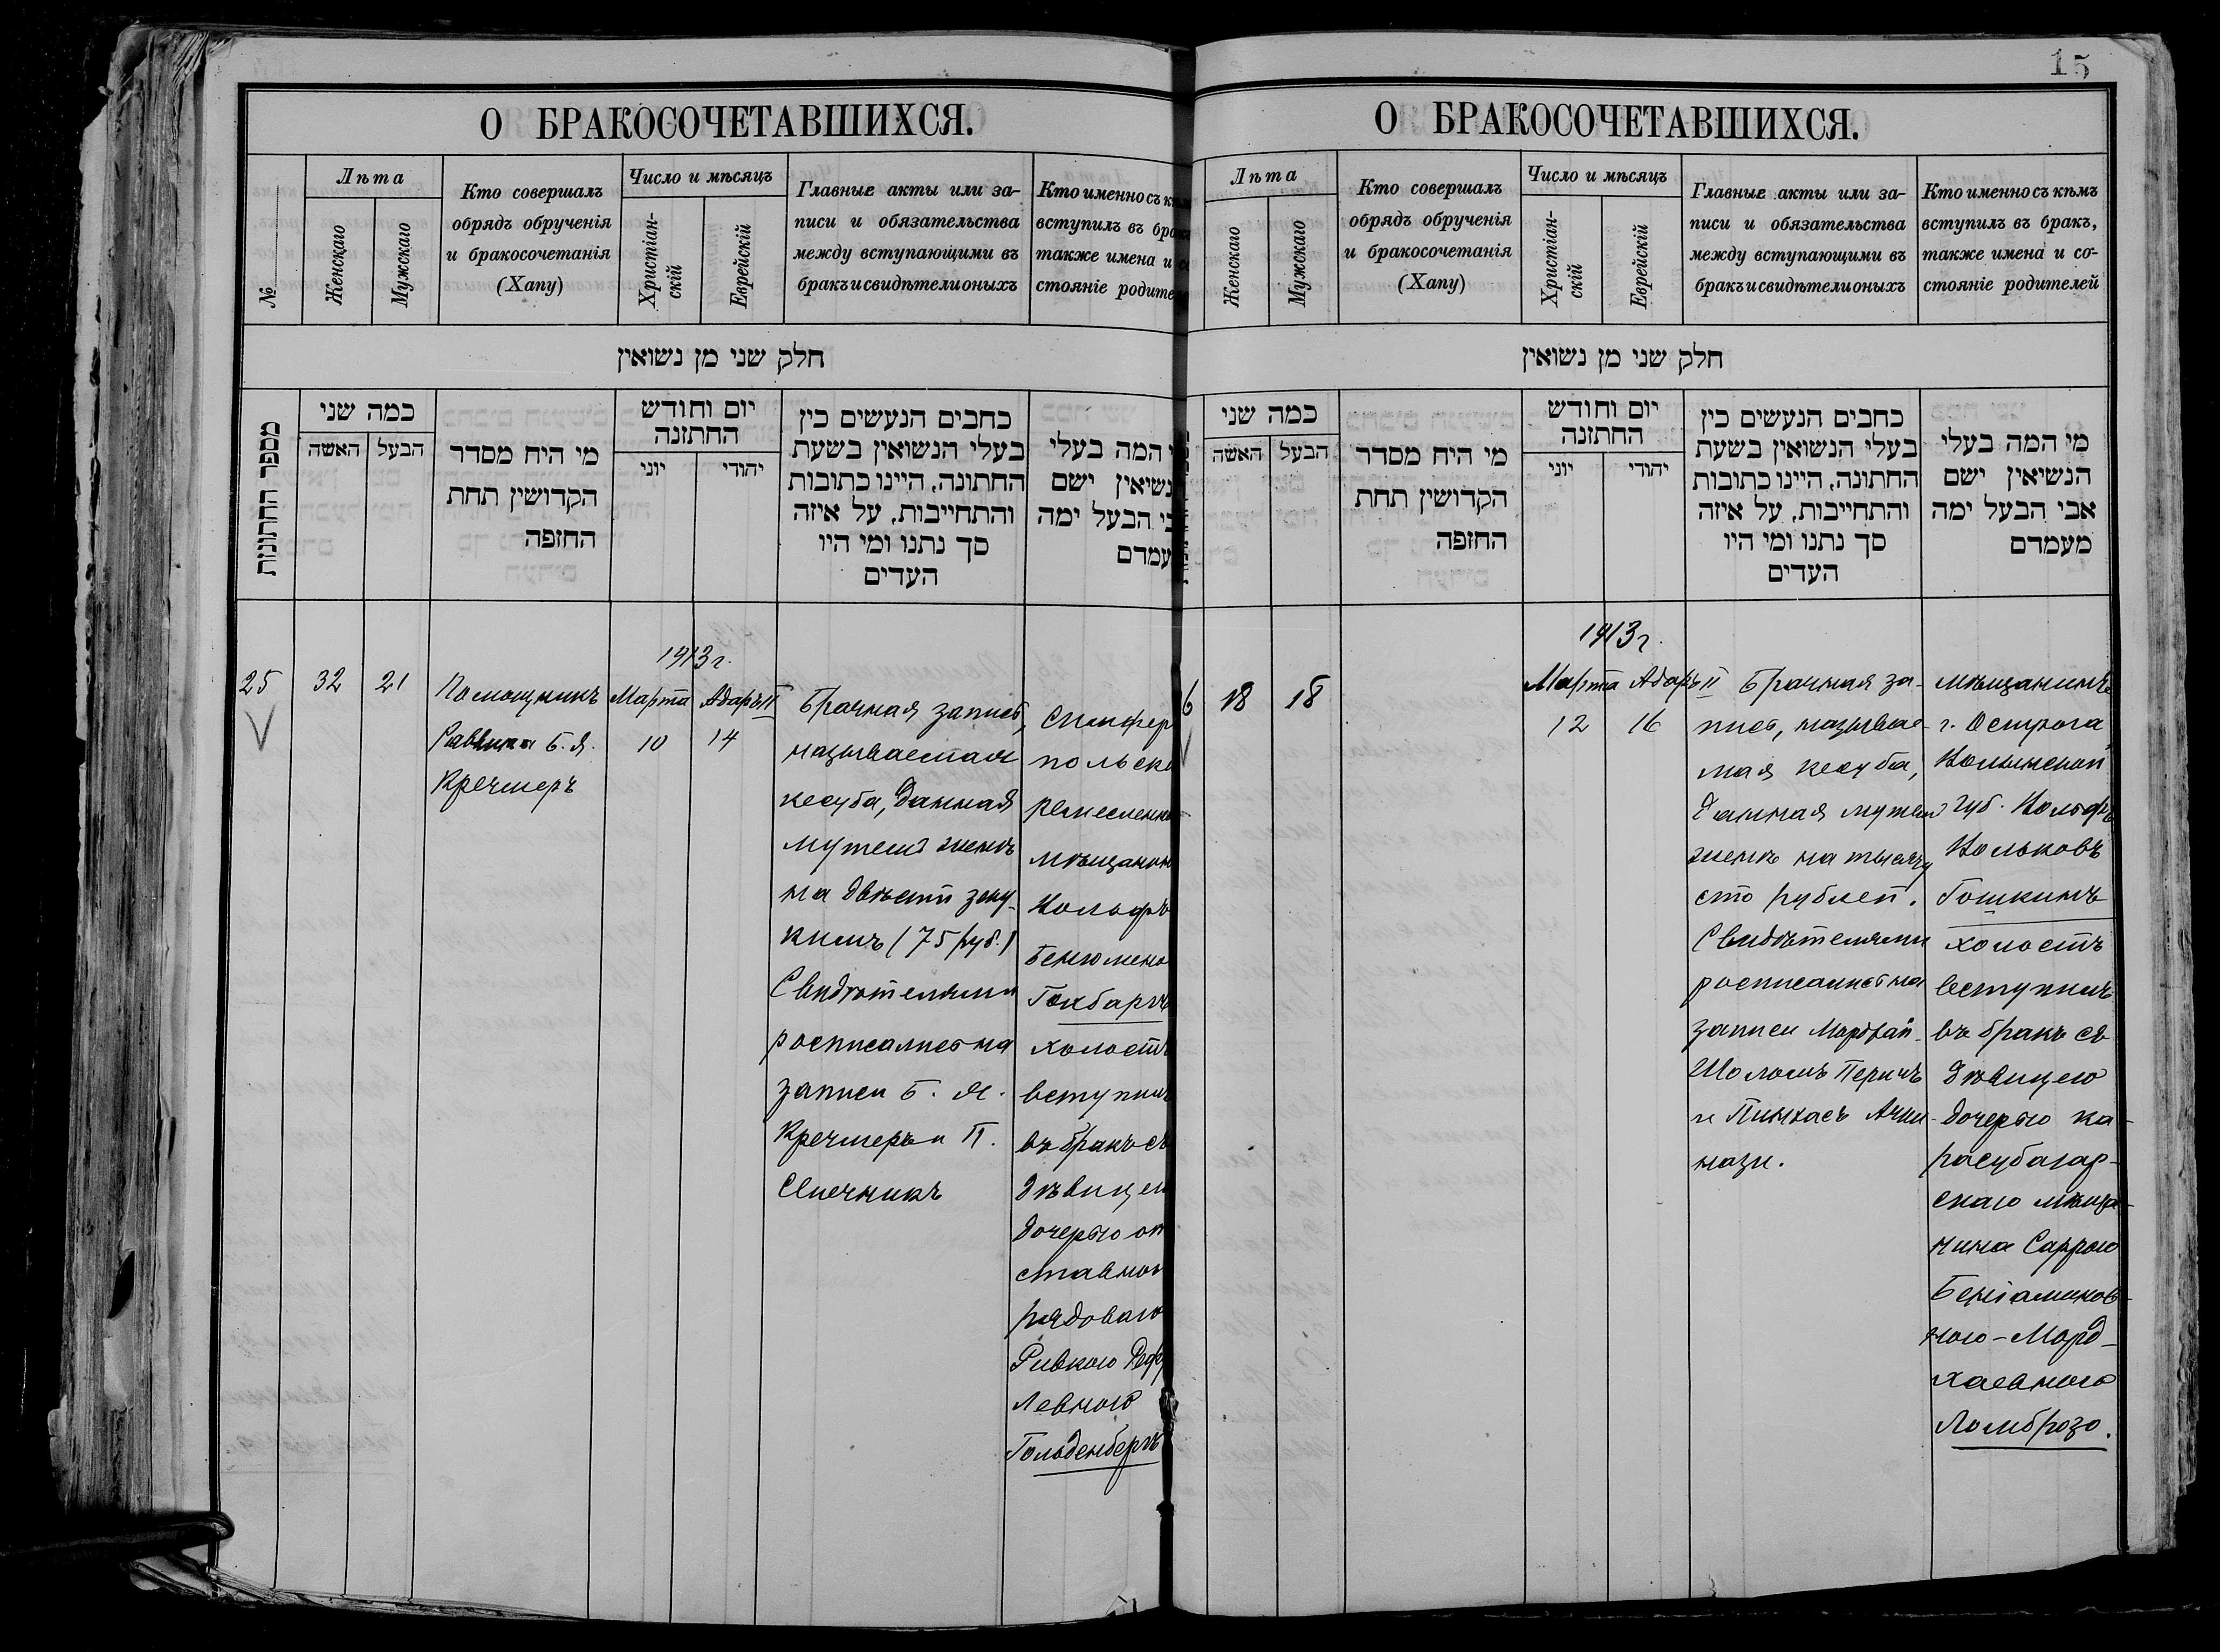 15
О БРАКОСОЧЕТАВШИХСЯ.
№
Лѣта
Женскаго
Мужскаго
Кто совершалъ
обрядъ обрученія
и бракосочетанія
(Хапу)
Число и мѣсяцъ
Христіан-
скій
Еврейскій
Главные акты или за-
писи и обязательства
между вступающими въ
бракъ и свидѣтели оныхъ
Кто именно съ
вступилъ въ
также имена и
стояніе
חלק שני מן נשואין
מספר החתונות
כמה שני
האשה
הבעל
מי היח מסדר
הקדושין תחת
החופה
יום וחודש
החתונה
יוני
יהודי
כחבים הנעשים בין
בעלי הנשואין בשעת
החתונה, היינו כתובות
והתחייבות, על איזה
סך נתנו ומי היו
העדים
המה בעלי
ישם
הבעל ימה
25
32
21
Помощникъ
Раввина Б. Я.
Кречмеръ
1913 г.
Марта
10
Адаръ II
14
Брачная запись,
называемая
кесуба, данная
мужемъ женѣ
на двѣсти зеку-
кимъ (75 руб.)
Свидѣтелями
росписались на
записи Б. Я.
Кречмеръ и П.
Свечникъ
Вольфъ
холостъ
въ бракъ съ
дочерью от
рядоваго
Ривкою
Левною
Гольденбергъ
О БРАКОСОЧЕТАВШИХСЯ.
Лѣта
Женскаго
Мужскаго
Кто совершалъ
обрядъ обрученія
и бракосочетанія
(Хапу)
Число и мѣсяцъ
Христіан-
скій
Еврейскій
Главные акты или за-
писи и обязательства
между вступающими въ
бракъ и свидѣтели оныхъ
Кто именно съ кѣмъ
вступилъ въ бракъ,
также имена и со-
стояніе родителей
חלק שני מן נשואין
כמה שני
האשה
הבעל
מי היח מסדר
הקדושין תחת
החופה
יום וחודש
החתונה
יוני
יהודי
כחבים הנעשים בין
בעלי הנשואין בשעת
החתונה, היינו כתובות
והתחייבות, על איזה
סך נתנו ומי היו
העדים
מי המה בעלי
הנשיאין ישם
אבי הבעל ימה
מעמדם
6
18
18
1913 г.
Марта
12
Адаръ II
16
Брачная за-
пись, называе-
мая кесуба,
данная мужемъ
женѣ на тысячу
сто рублей.
Свидѣтелями
росписались на
записи Мордхай-
Шоломъ Перичъ
и Пинхасъ Ачки-
нази.
мѣщанинъ
г. Острога
Волынской
губ. Вольфъ
Вольковъ
Гошкинъ
холостъ
вступилъ
въ бракъ съ
дѣвицею
дочерью ка-
расубазар-
скаго мѣща-
нина Саррою
Беніаминов-
ною-Морд-
хаевною
Ломброзо.